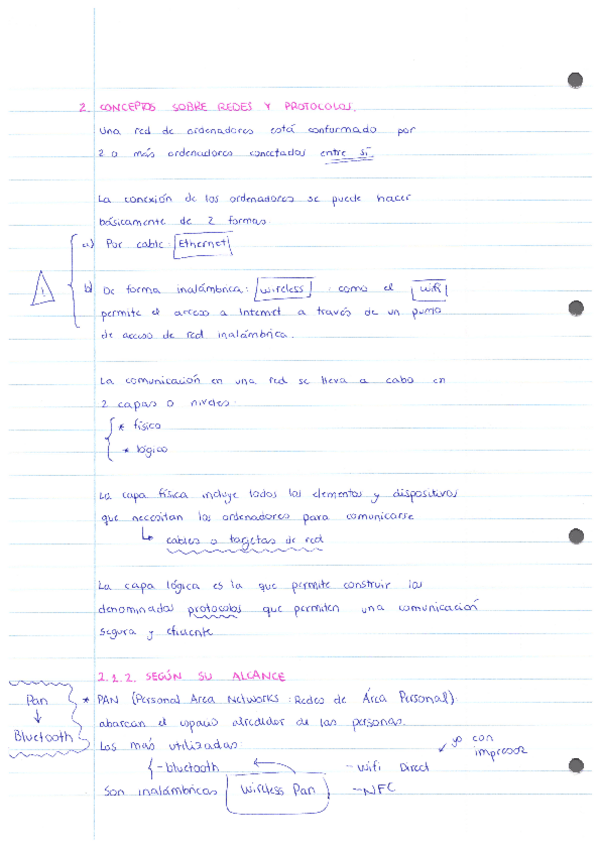 2. CONCEPTOS SOBRE REDES Y PROTOCOLOS.
Una red de ordenadores está conformado por
2 o más ordenadores conectados entre sí
La conexión de los ordenadores se puede hacer
básicamente de 2 formas
a) Por cable: Ethernet
b) De forma inalámbrica: wireless : como el wifi
permite el acceso a Internet a través de un punto
de acceso de red inalámbrica.
La comunicación en una red se lleva a cabo en
2 capas o niveles:
* físico
* lógico
La capa física incluye todos los elementos y dispositivos
que necesitan los ordenadores para comunicarse
↳ cables o tarjetas de red
La capa lógica es la que permite construir los
denominados protocolos que permiten una comunicación
segura y eficiente
2.1.2. SEGÚN SU ALCANCE
* PAN (Personal Area Networks: Redes de Área Personal)
abarcan el espacio alrededor de las personas.
Las más utilizadas:
- bluetooth
- Wifi Direct
yo con
impresor
Son inalámbricas Wireless Pan
- NFC
Pan
↓
Bluetooth